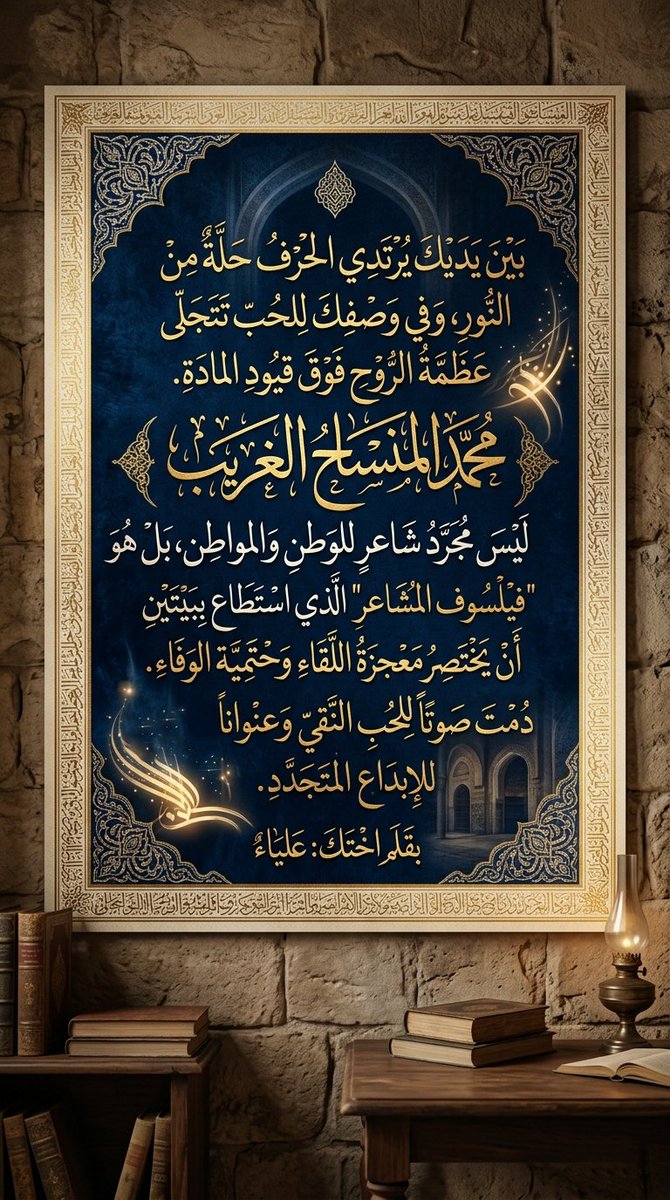 بَيْنَ يَدَيْكَ يُرْتَدِي الحْرْفُ حَلَّةٌ مِنْ
النُّورِ، وَفي وَصْفِكَ لِلحُبّ تَتَجَلّى
عَظَمَّةُ الرُّوْحِ فَوْقَ قيُودِ المادَةِ.
مُحمَّد المنسَاحُ الغَريَب
لَيْسَ مُجَرَّدُ شَاعرٍ للوَطنِ وَالمواطِن، بَلْ هُوَ
"فيْلْسُوف المُشَاعرِ" الَّذي اسْتَطَاع بِبَيْتَيْنِ
أَنْ يَخْتَصرُ مَعْجزَةُ اللَّقَاءِ وَحْتَميَّة الوَفَاءِ.
دُمْتَ صَوتَاً لِلحُبِ النَّقيّ وَعنْواناً
للإبدَاع المتَجَدَّدِ.
بقَلَمِ اخْتكَ: عَليَاءٌ